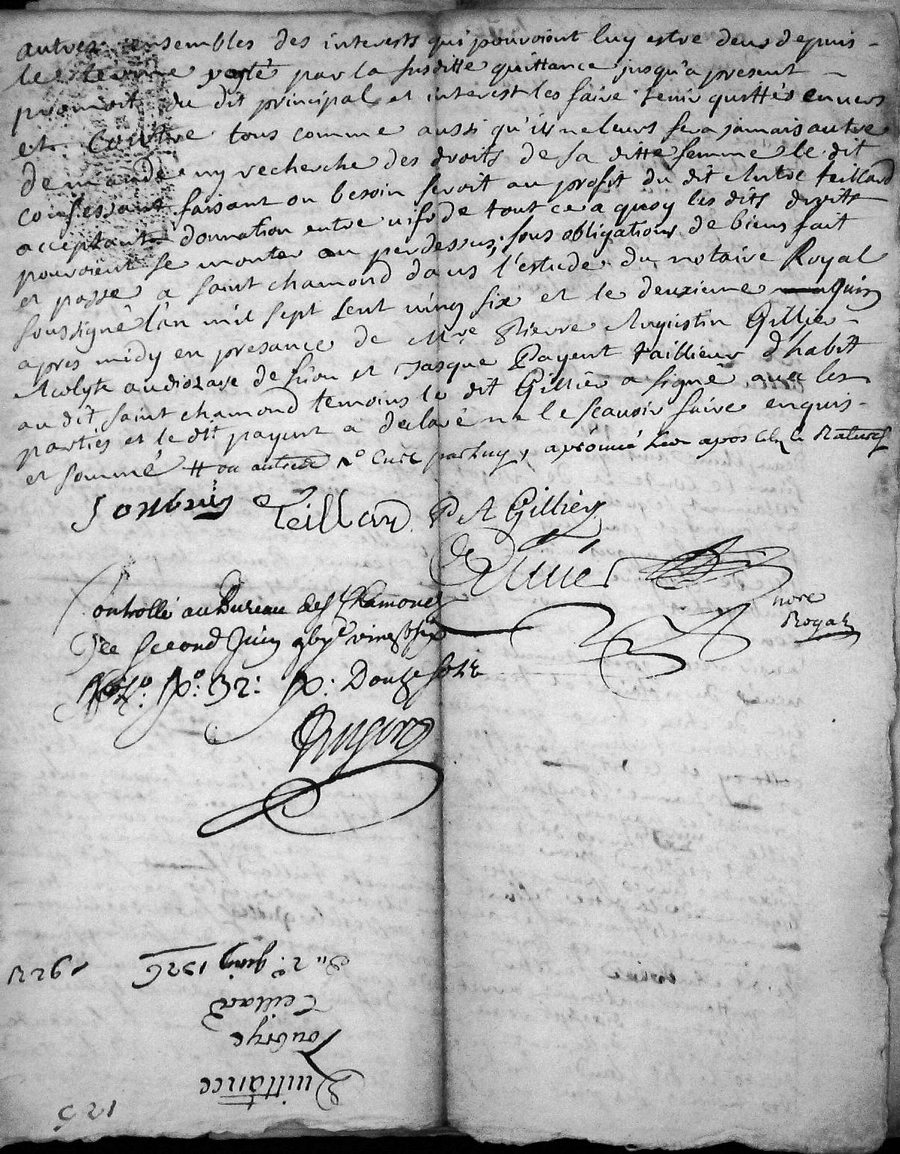 autres ensembles des interests qui pouvoint luy estre deus depuis
le terme porté par la susditte quittance jusqu'a present
promoit du dit principal et interest les faire tenir quittes envers
et contre tous comme aussi qu'il ne leurs sera jamais autre
demande ny recherche des droits de sa ditte femme le dit
confessant faisant ou besoin seroit au profit du dit Teillard
acceptant donnation entre vifs de tout ce a quoy les dits droits
pouvoient se monter au pardessus, sous obligations de biens fait
et passé a saint chamond dans l'estude du notaire Royal
soussigné l'an mil sept sent vingt six et le deuzieme Juin
apres midy en presance de Mre Pierre Augistin Gillier
Acolyte au diozaize de Lion et Jasque Payent taillieur d'habit
au dit saint chamond temoins le dit Gillier a signé avec les
parties et le dit payent a declaré ne le scavoir faire enquis
et sommé
Teillard P A Gillier
nore
Royal
Controllé au Bureau de St Chamond
le second Juin vingt six
fo: 32: Douze sols
Quittance
Teillard
Du 2e juin 1726
521